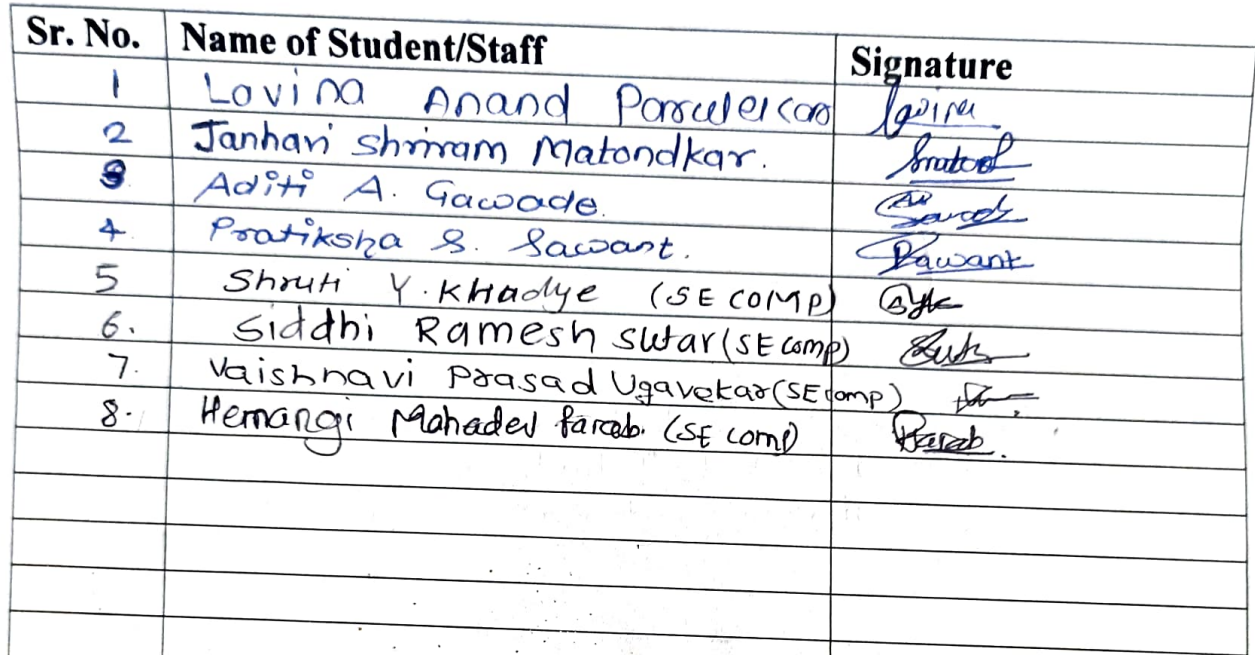 Sr. No. Name of Student/Staff Signature
1 Lovina Anand Parulekar lovina
2 Janhavi Shriram Matondkar.
3 Aditi A. Gawade.
4 Pratiksha S. Sawant. Psawant
5 Shruti Y. Khadye (SE COMP)
6. Siddhi Ramesh Sutar (SE comp)
7. Vaishnavi Prasad Ugavekar (SE comp)
8. Hemangi Mahadev Parab. (SE comp) Parab.